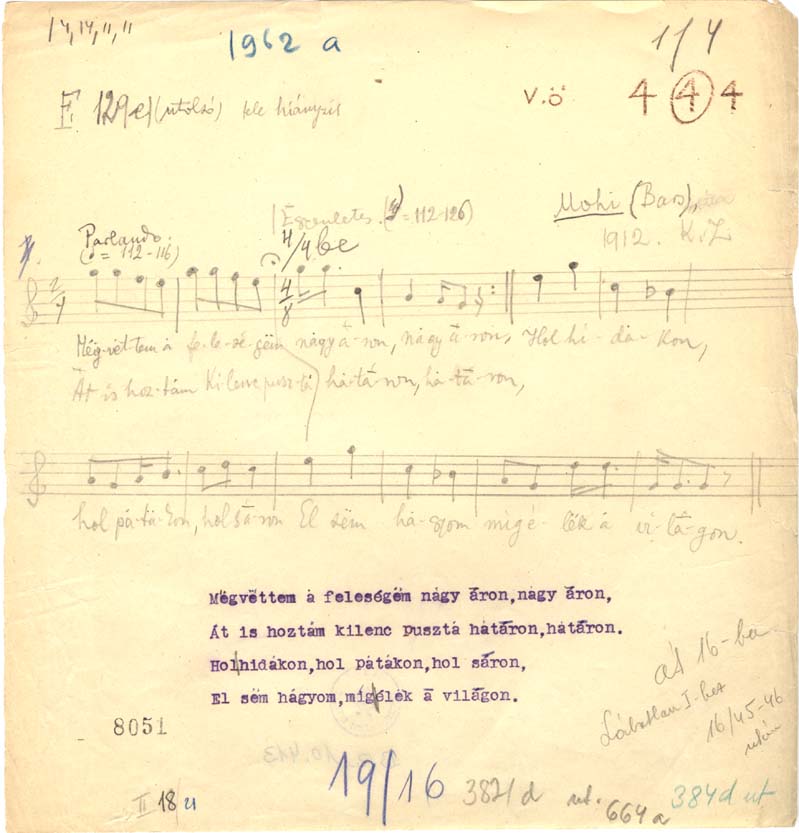 14, 14, 11, 11
1962 a
11/4
F. 129e/(utolsó) fele hiányzik
V.ö 4 4 4
Mohi (Bars),
1912. K.Z
Parlando.
(♩ = 112-116)
4/4 be
2/4
4/8
Mëg-vët-tem å fe-le-sé-gëm nágy á-ron, nágy á-ron, Hol hi-dá-kon,
Át is hoz-tám Kilenc pusz-tá há-tá-ron, há-tá-ron,
hol pá-tá-kon, hol sá-ron El sëm há-gyom mígé-lëk á vi-lá-gon.
Mëgvëttem á feleségëm nágy áron,nágy áron,
Át is hoztám kilenc pusztá hátáron,hátáron.
Hol hidákon,hol pátákon,hol sáron,
El sëm hágyom,mígélëk á világon.
át 16-ba
Lábatlan I-hez
16/45-46
után
8051
19/16
II 18/21
382/d
ut. 664a
384d ut